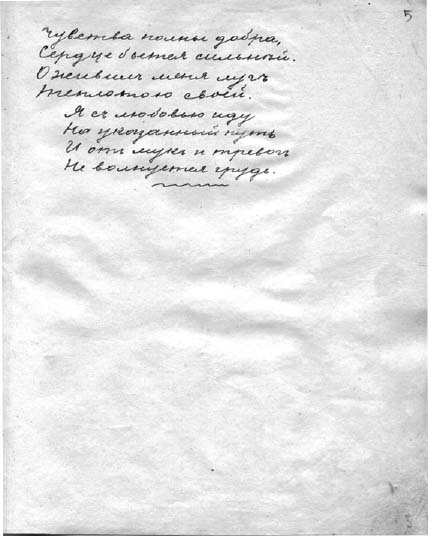 5
Чувства полны добра,
Сердце бьется сильный.
Оживилъ меня лучъ
Теплотою своей.
Я съ любовью иду
На указанный путь
И отъ мукъ и тревогъ
Не волнуется грудь.